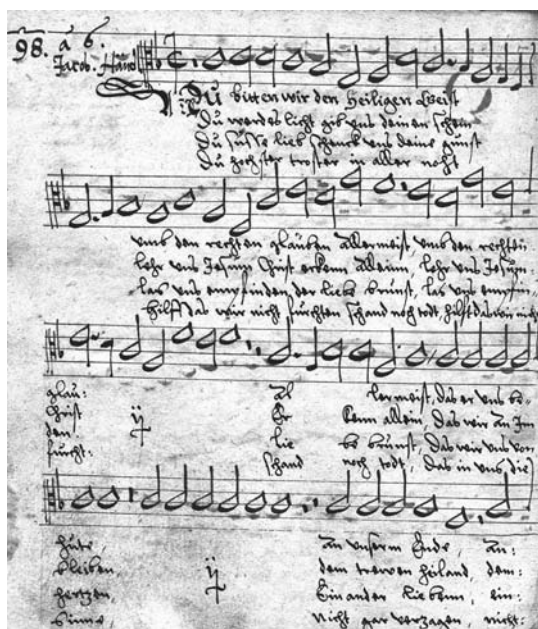 98. à 6.
Jacob. Händl
Nu bitten wir den heiligen Geist
Du werdes licht gib uns deinen schein
Du süsse lieb schenck uns deine gunst
Du hochster troster in aller noht
umb den rechten glauben allermeist, umb den rechten
lehr uns Jesum Christ erkenn allein, lehr uns Jesum
las uns empfinden der liebe brunst, las uns empfin:
hilff das wir nicht fürchten schand noch todt, hilff das wir nich
glau: al lermeist, das er uns be
Christ Er kenn allein, das wir an Im
den lie be brunst, das wir uns von
fürcht: schand noch todt, das in uns die
hüte, an unserm Ende, an:
bleiben, dem trewen heiland, dem:
hertzen, Einander lieben, ein:
Sinne, nicht gar verzagen, nicht: